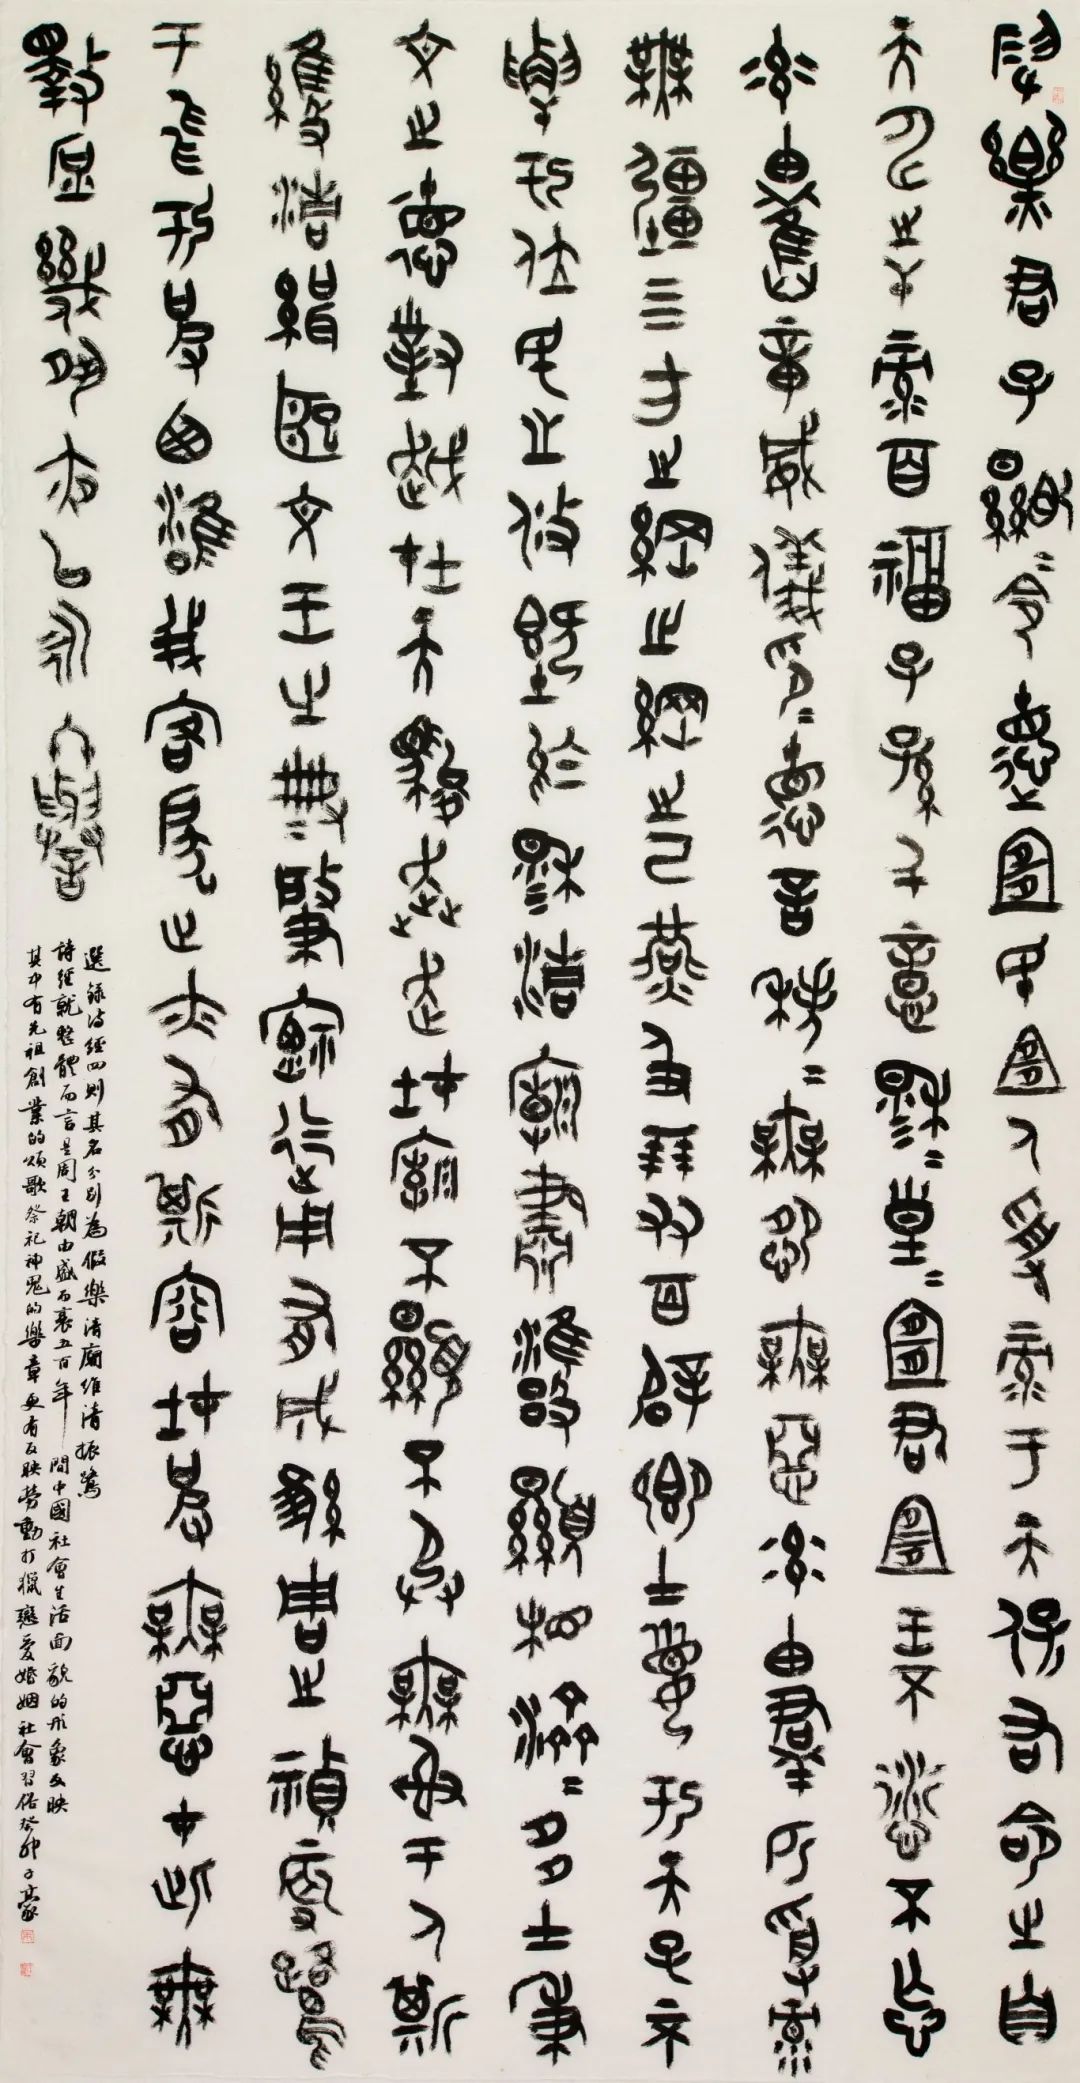 假樂君子顯=令德宜民宜人受祿于天保右命之自
天申之干祿百福子孫千億穆=皇=宜君宜王不愆不忘
率由舊章威儀抑=德音秩=無怨無惡率由群匹受祿
無疆四方之綱之綱之紀燕及朋友百辟卿士媚于天子不
解于位民之攸塈於穆清廟肅雝顯相濟=多士秉
文之德對越在天駿奔走在廟不顯不承無射于人斯
維清緝熙文王之典肇禋迄用有成維周之禎振鷺
于飛于彼西雝我客戾止亦有斯容在彼無惡在此無
斁庶幾夙夜以永終譽
選錄詩經四則其名分別為假樂清廟維清振鷺
詩經就整體而言是周王朝由盛而衰五百年間中國社會生活面貌的形象反映
其中有先祖創業的頌歌祭祀神鬼的樂章更有反映勞動打獵戀愛婚姻社會習俗癸卯子豪